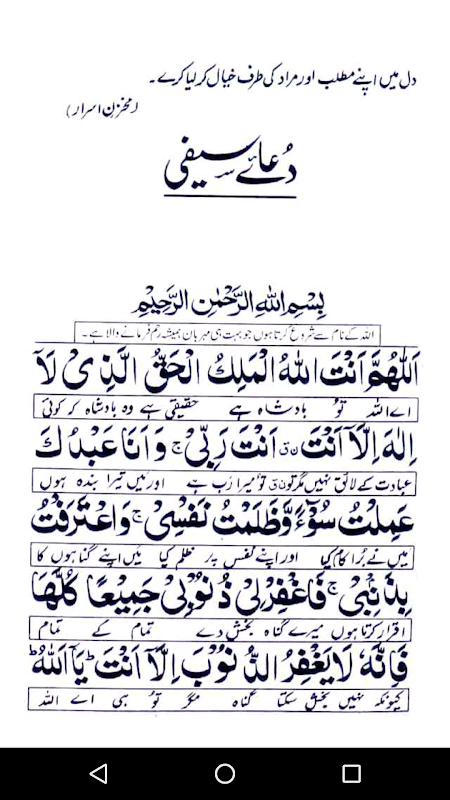 دل میں اپنے مطلب اور مراد کی طرف خیال کر لیا کرے۔
(مخزن اسرار)
دُعائے سیفی
بِسْمِ اللهِ الرَّحْمٰنِ الرَّحِيْمِ
اللہ کے نام سے شروع کرتا ہوں جو بہت ہی مہربان ہمیشہ رحم فرمانے والا ہے۔
اَللّٰهُمَّ اَنْتَ اللهُ الْمَلِكُ الْحَقُّ الَّذِيْ لَآ
اے اللہ تُو بادشاہ ہے حقیقی ہے وہ بادشاہ کہ کوئی
اِلٰهَ اِلَّآ اَنْتَ ن ق اَنْتَ رَبِّيْ ج وَ اَنَا عَبْدُكَ
عبادت کے لائق نہیں مگر تو ن ق تو میرا رب ہے اور میں تیرا بندہ ہوں
عَمِلْتُ سُوْٓءً وَّظَلَمْتُ نَفْسِيْ ج وَاعْتَرَفْتُ
میں نے بُرا کام کیا اور اپنے نفس پر ظلم کیا میں اپنے گناہوں کا
بِذَنْۢبِيْ ج فَاغْفِرْلِيْ ذُنُوْبِيْ جَمِيْعًا كُلَّهَا
اقرار کرتا ہوں میرے گناہ بخش دے تمام کے تمام
فَاِنَّهٗ لَا يَغْفِرُ الذُّنُوْبَ اِلَّآ اَنْتَ ط يَآ اَللهُ ط
کیونکہ نہیں بخش سکتا گناہ مگر تُو ہی اے اللہ